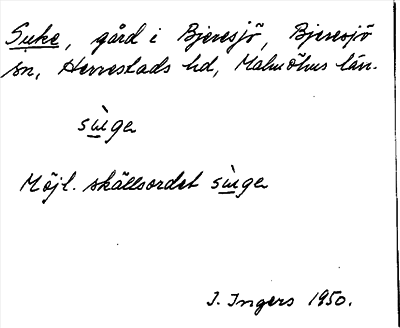 Suke, gård i Bjeresjö, Bjeresjö
sn, Herrestads hd, Malmöhus län.
sùgə
Möjl. skällsordet sùgə
I. Ingers 1950.